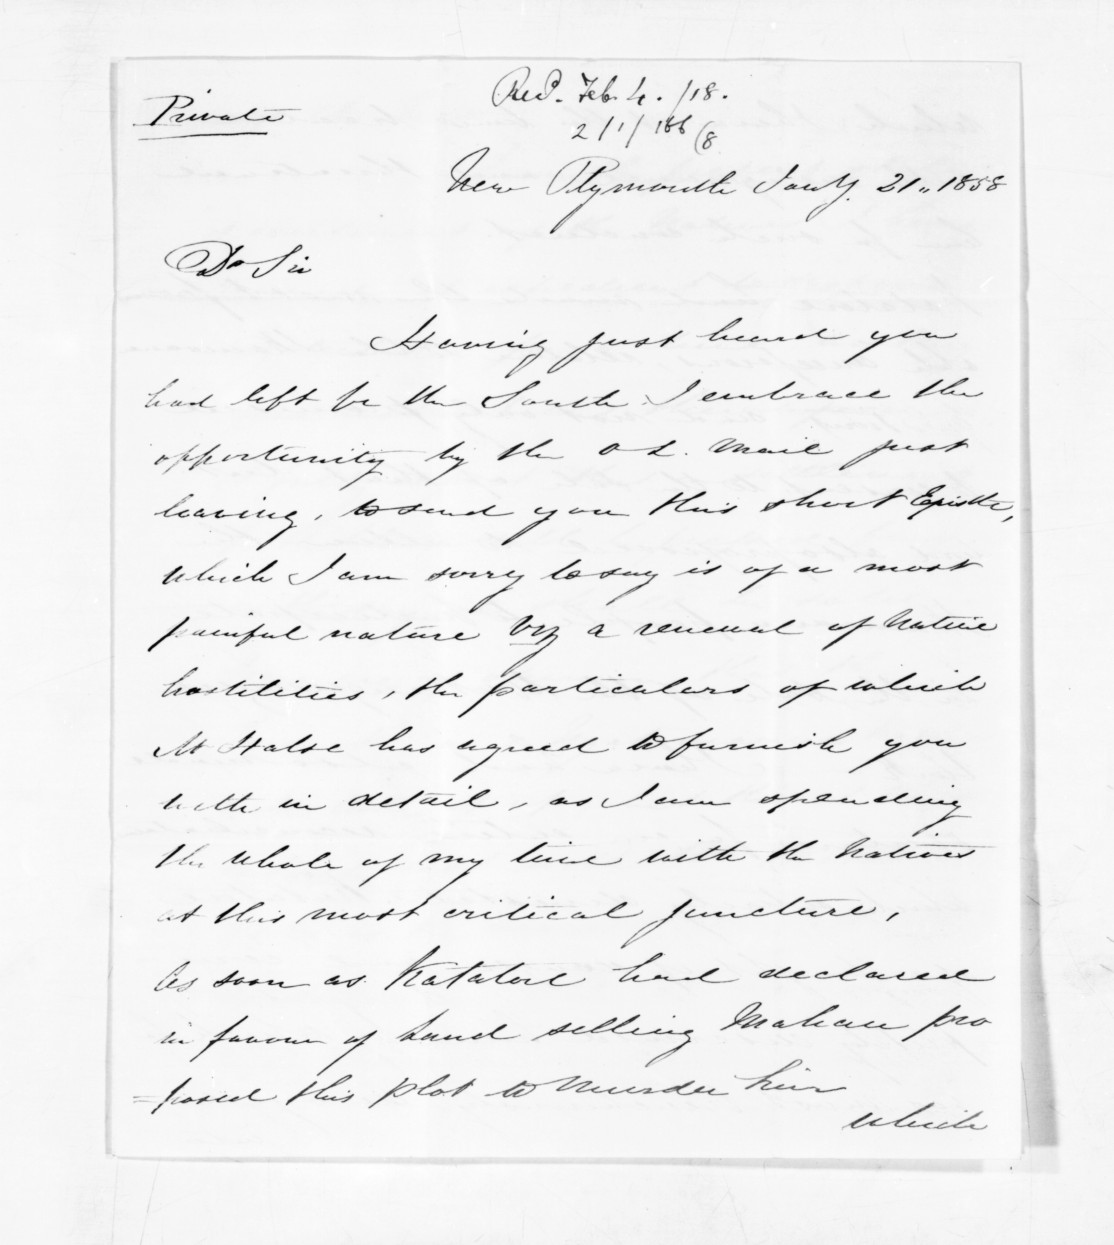 Private
Recd. Feb. 4. /18.
New Plymouth Jany. 21.. 1858
Dr Sir
Having just heard you
had left for the South I embrace the
opportunity by the O L. mail just
leaving, to send you this short Epistle,
which I am sorry to say is of a most
painful nature viz a renewal of Native
hostilities, the particulars of which
Mr Halse has agreed to furnish you
with in detail, as I am spending
the whole of my time with the Natives
at this most critical juncture,
As soon as Katatore had declared
in favour of Land selling Mahau pro
=posed this plot to Murder him
which